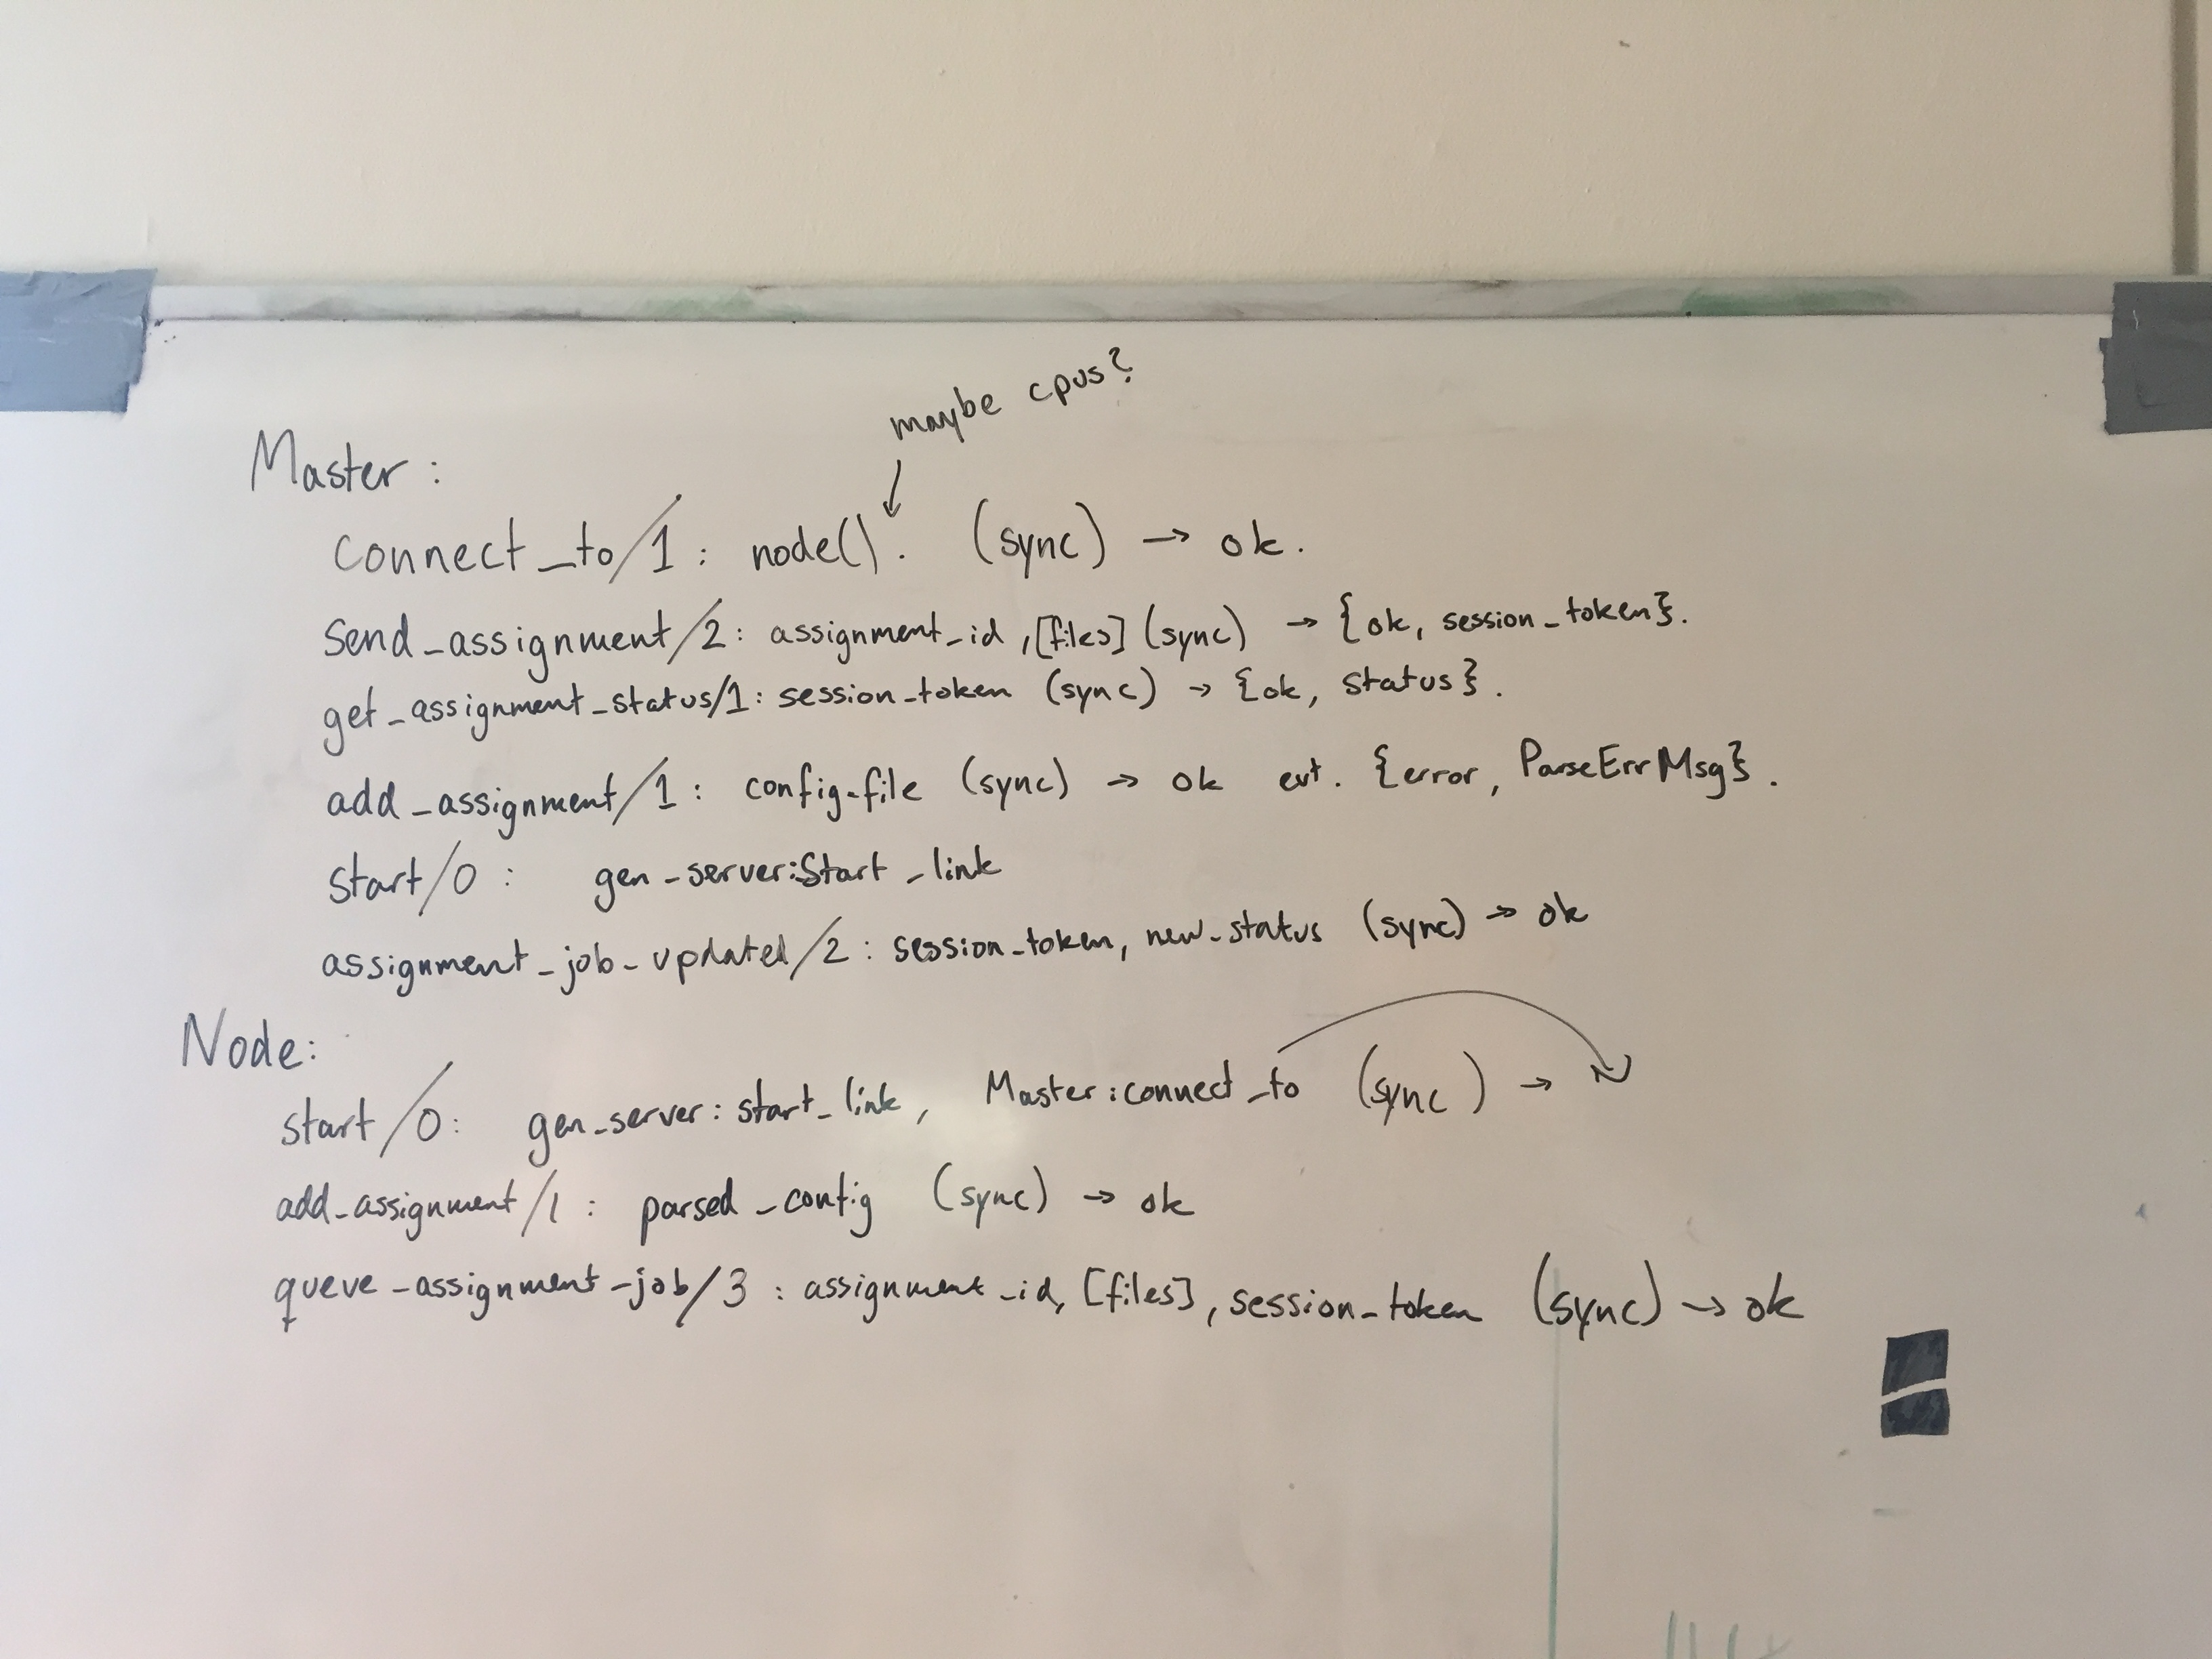 maybe cpus?
Master:
connect_to/1: node(). (sync) → ok.
Send_assignment/2: assignment_id, [files] (sync) → {ok, session_token}.
get_assignment_status/1: session_token (sync) → {ok, status}.
add_assignment/1: config-file (sync) → ok evt. {error, ParseErrMsg}.
start/0: gen_server:Start_link
assignment_job_updated/2: session_token, new_status (sync) → ok
Node:
start/0: gen_server:start_link, Master:connect_to (sync) →
add_assignment/1: parsed_config (sync) → ok
queue_assignment_job/3: assignment_id, [files], session_token (sync) → ok